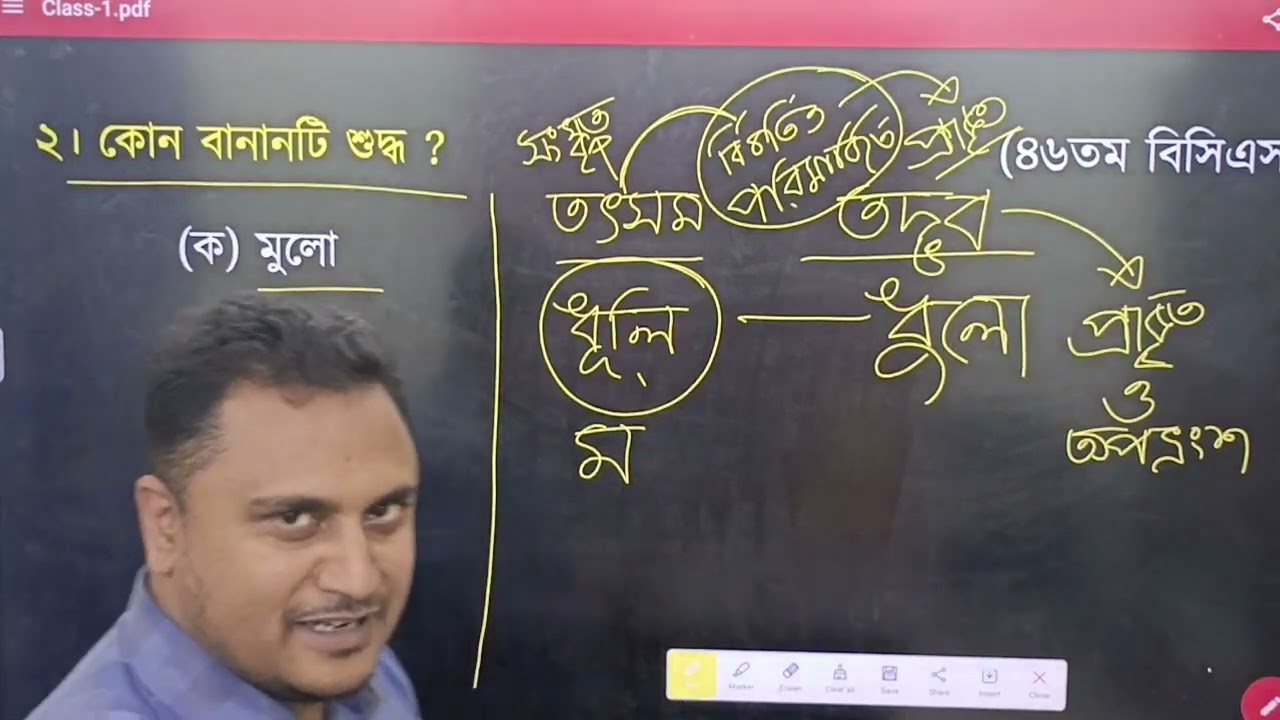 Class-1.pdf
২। কোন বানানটি শুদ্ধ ?
(৪৬তম বিসিএস
(ক) মুলো
সংস্কৃত
বিবর্তিত ও
পরিমার্জিত
প্রাকৃত
তৎসম
তদ্ভব
ধূলি — ধুলো
প্রাকৃত
ও
অপভ্রংশ
ম
Marker Eraser Clear all Save Share Insert Close